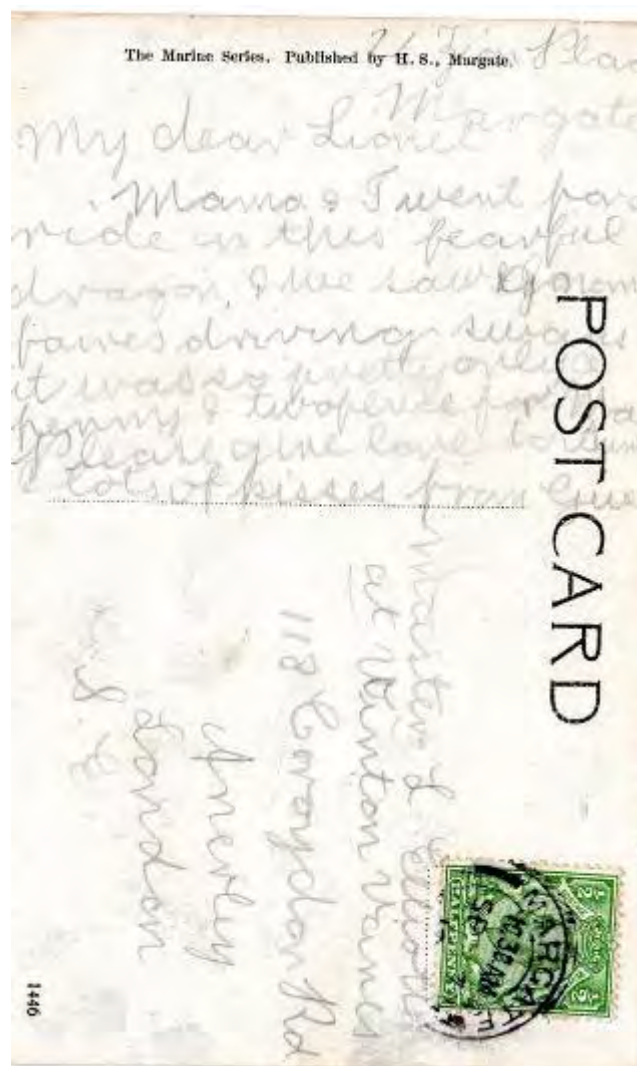 The Marine Series. Published by H. S., Margate.
Margate
My dear Lionel
Mama & I went for
ride in this fearful
dragon, & we saw
faires driving swans
it was so pretty only
penny & twopence for
Please give love to
& lots of kisses from
POST CARD
Master L
at Winton Vines
118 Croydon Rd
Anerley
London
S. E.
MARGATE
10.30 AM
SP
HALFPENNY
½
½
1446